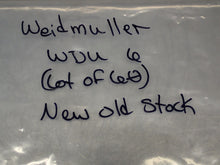 Weidmuller
WDU 6
(Lot of 60)
New old Stock